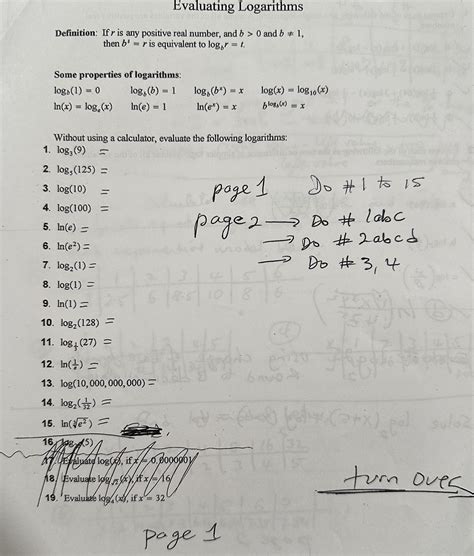 Evaluating Logarithms
Definition: If r is any positive real number, and b > 0 and b ≠ 1,
then bᵗ = r is equivalent to log_b r = t.
Some properties of logarithms:
log_b(1) = 0 log_b(b) = 1 log_b(bˣ) = x log(x) = log₁₀(x)
ln(x) = logₑ(x) ln(e) = 1 ln(eˣ) = x b^(log_b(x)) = x
Without using a calculator, evaluate the following logarithms:
1. log₃(9) =
2. log₅(125) =
3. log(10) =
4. log(100) =
5. ln(e) =
6. ln(e²) =
7. log₂(1) =
8. log(1) =
9. ln(1) =
10. log₂(128) =
11. log_(1/3)(27) =
12. ln(1/e) =
13. log(10,000,000,000) =
14. log₂(1/32) =
15. ln(∜e²) =
16. (5)
17. Evaluate log(x), if x = 0.0000001
18. Evaluate (x), if x = 16
19. Evaluate (x), if x = 32
page 1 Do # 1 to 15
page 2 → Do # 1abc
→ Do # 2abcd
→ Do # 3, 4
turn over
page 1